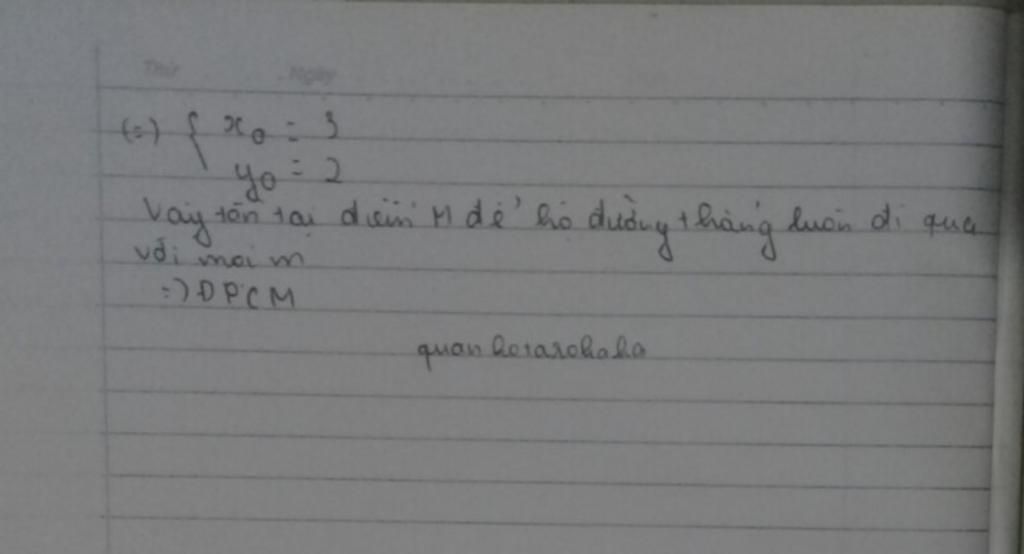 Thứ Ngày
(=) { x0 = 3
y0 = 2
Vậy tồn tại điểm M để họ đường thẳng luôn đi qua
với mọi m
=) ĐPCM